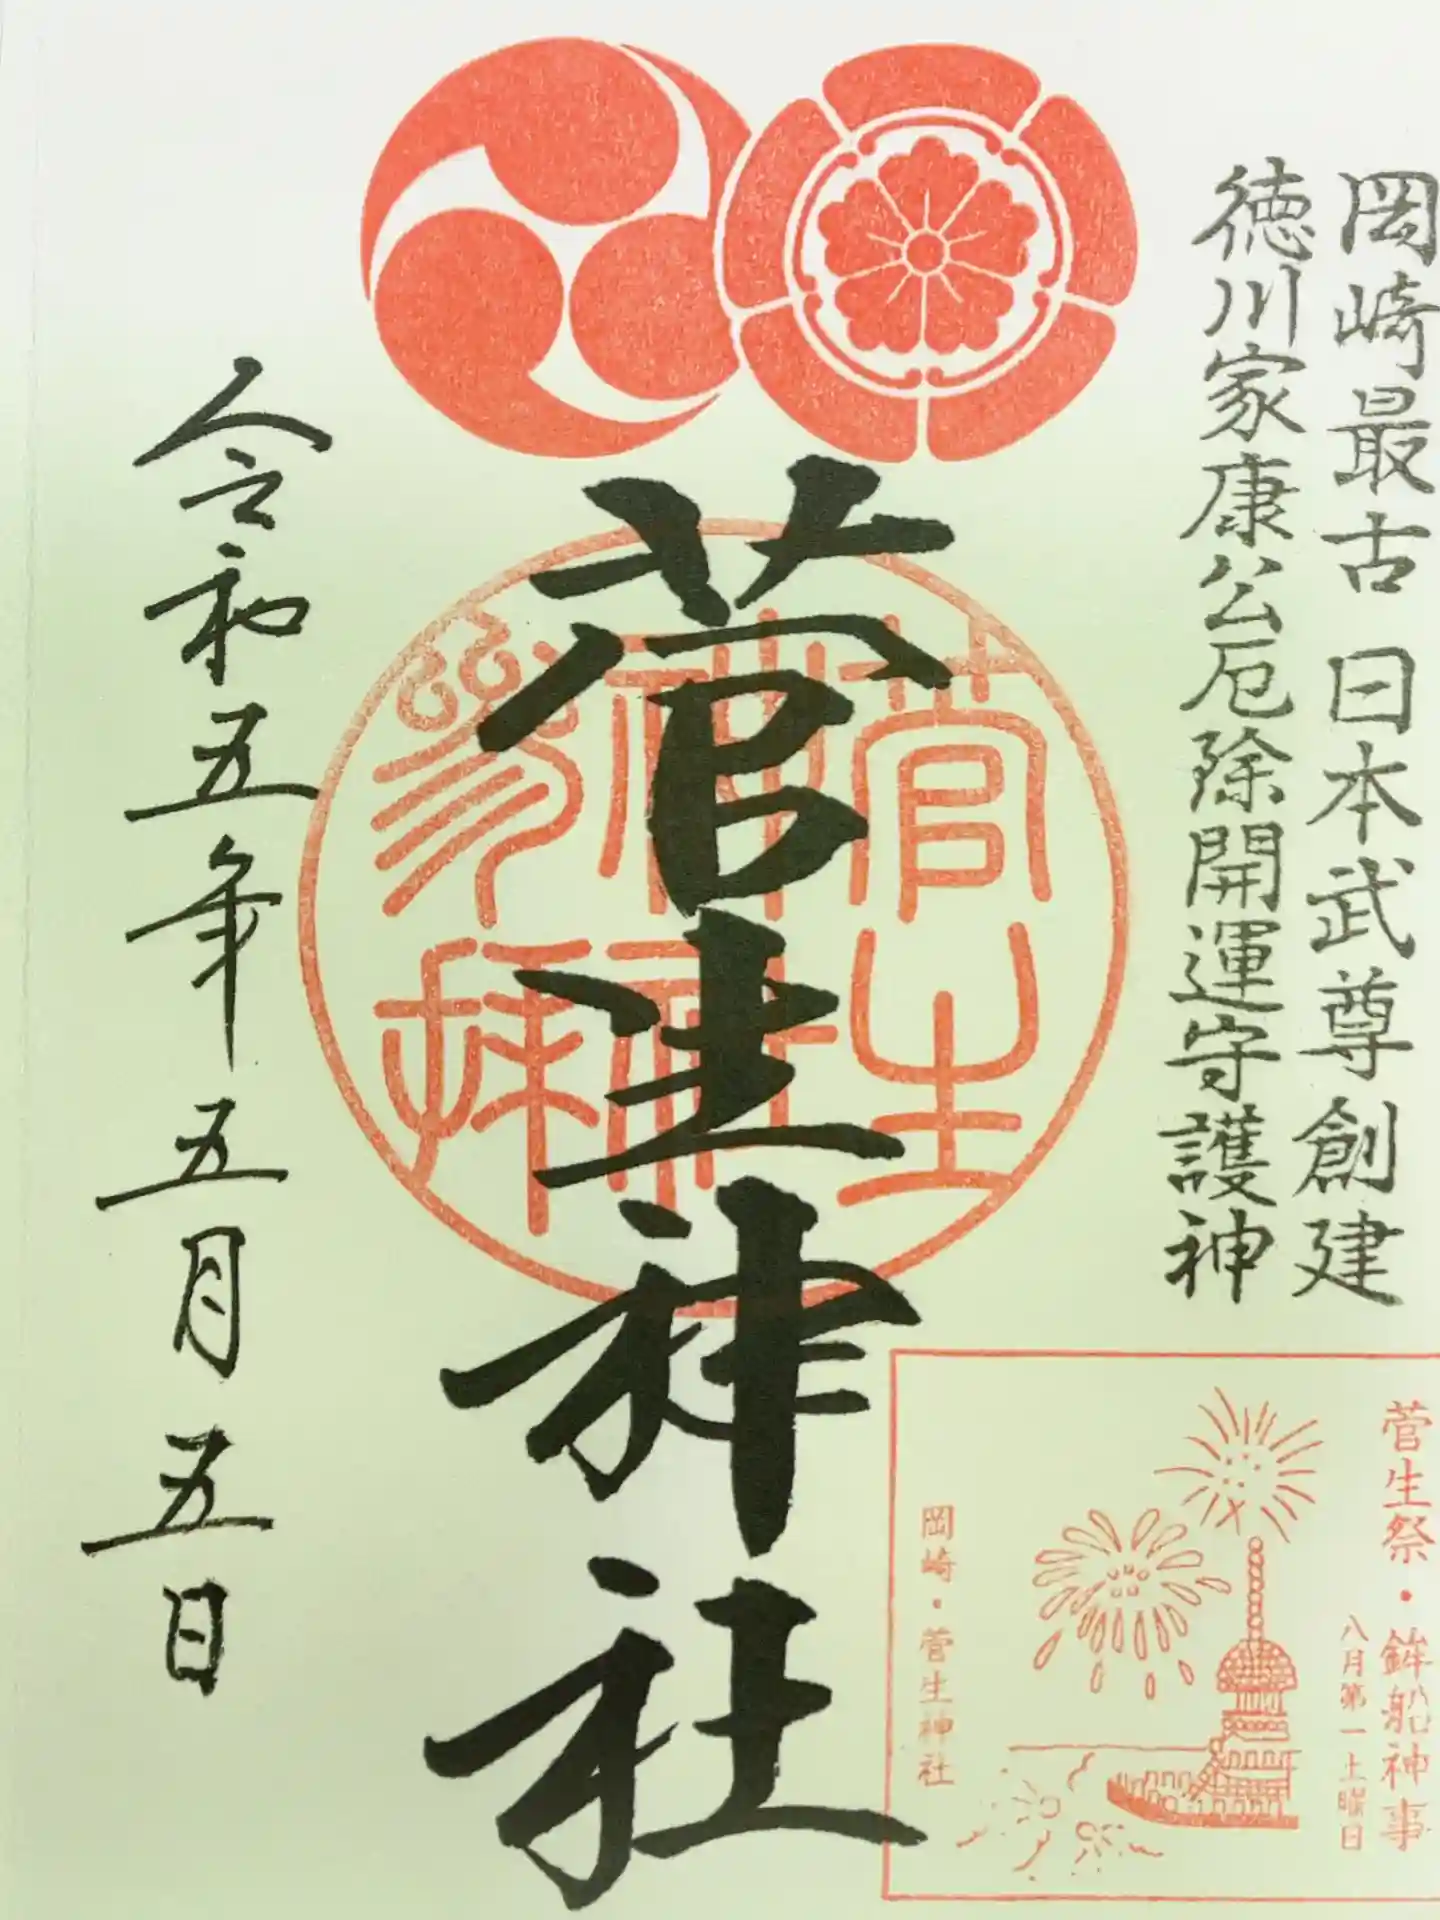 岡崎最古 日本武尊創建
徳川家康公厄除開運守護神
菅生神社
菅生
神社
参拝
令和五年五月五日
菅生祭・鉾船神事
八月第一土曜日
岡崎・菅生神社